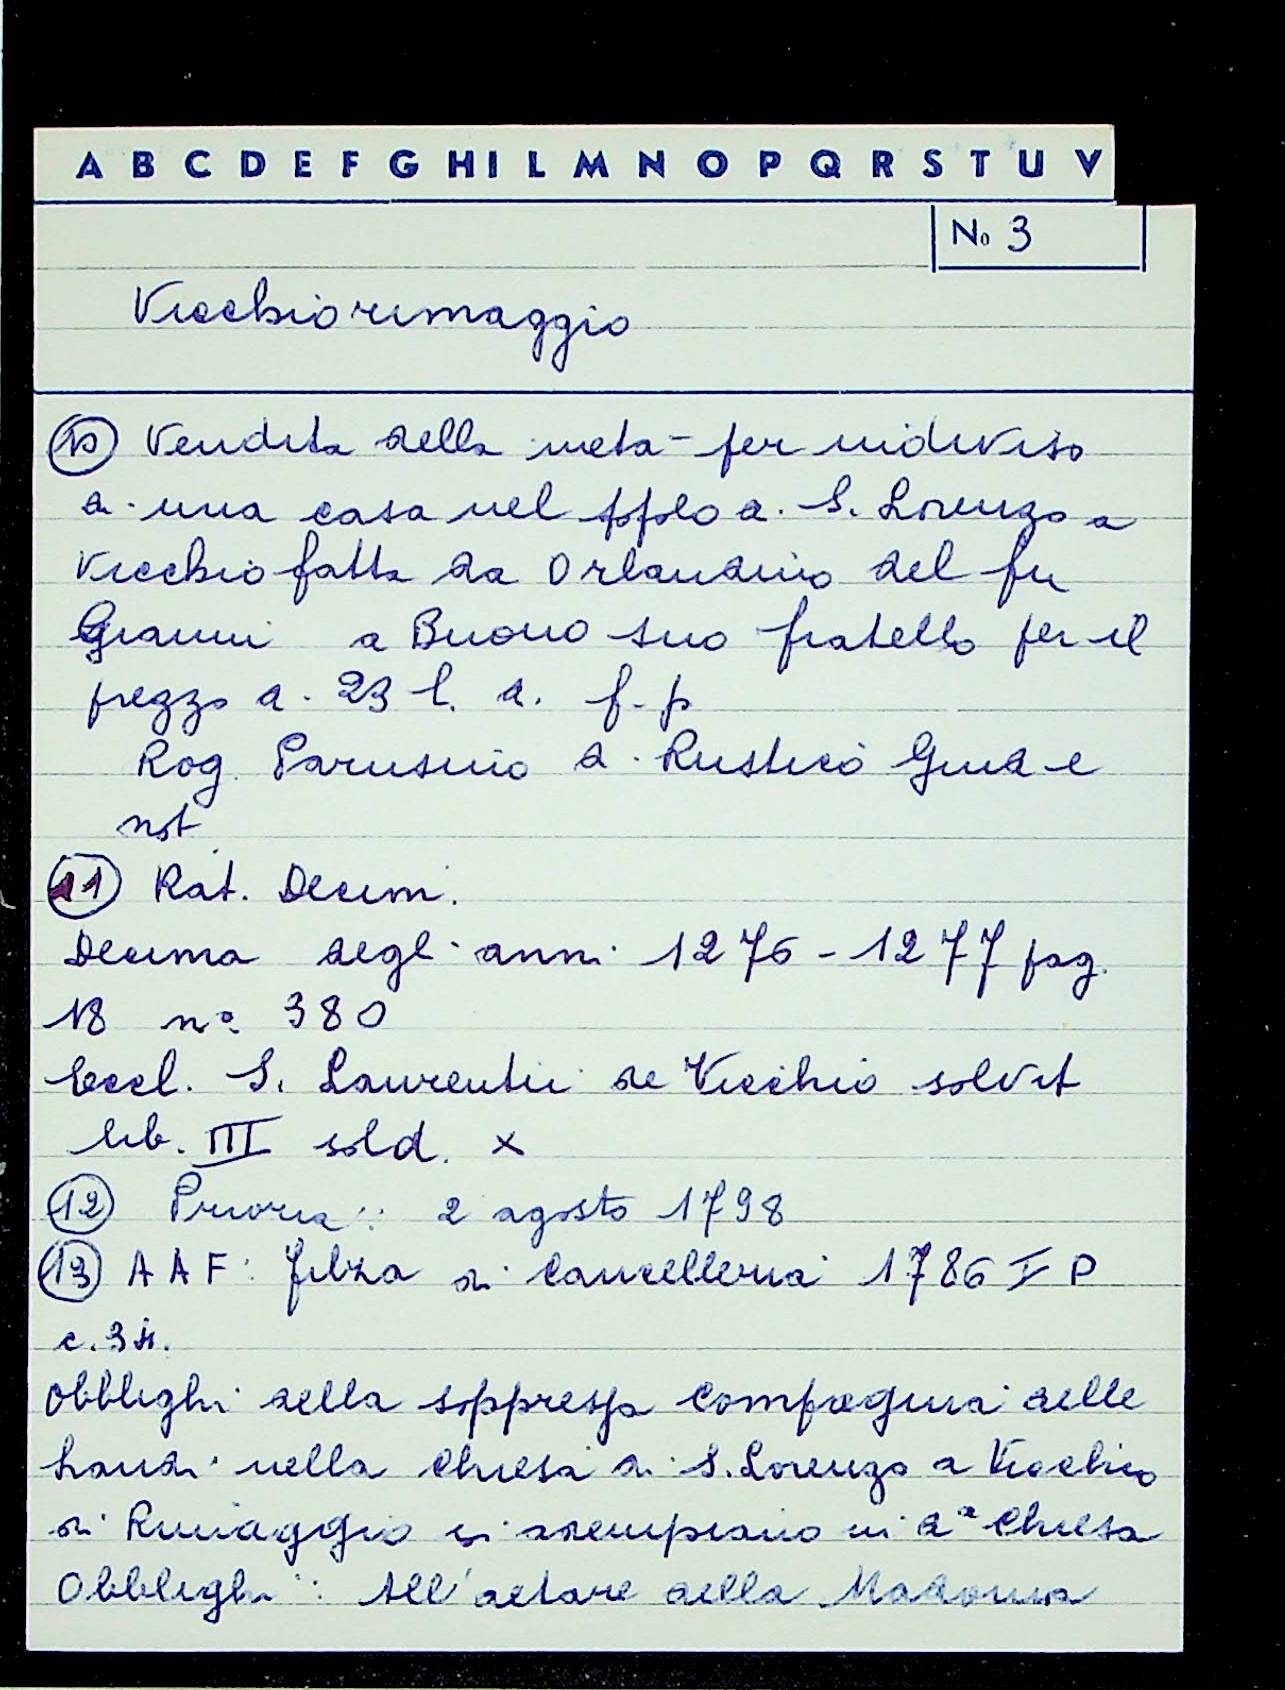 A B C D E F G H I L M N O P Q R S T U V
No 3
Vicchiorimaggio
10 Vendita della metà per indiviso
di una casa nel popolo d. S. Lorenzo a
Vicchio fatta da Orlandino del fu
Gianni a Buono suo fratello per il
prezzo d. 23 l. d. f. p
Rog. Parusino d. Rustico Giud e
not
11 Rat. Decim.
Decima degli anni 1276-1277 pag.
18 n° 380
Eccl. S. Laurentii de Vicchio solvit
lib. III sold. x
12 Prioria: 2 agosto 1798
13 AAF: filza di Cancelleria 1786 I P
c. 34.
Obblighi della soppressa Compagnia delle
Laudi nella Chiesa di S. Lorenzo a Vicchio
di Rimaggio si adempiano in da Chiesa
Obblighi: All'altare della Madonna